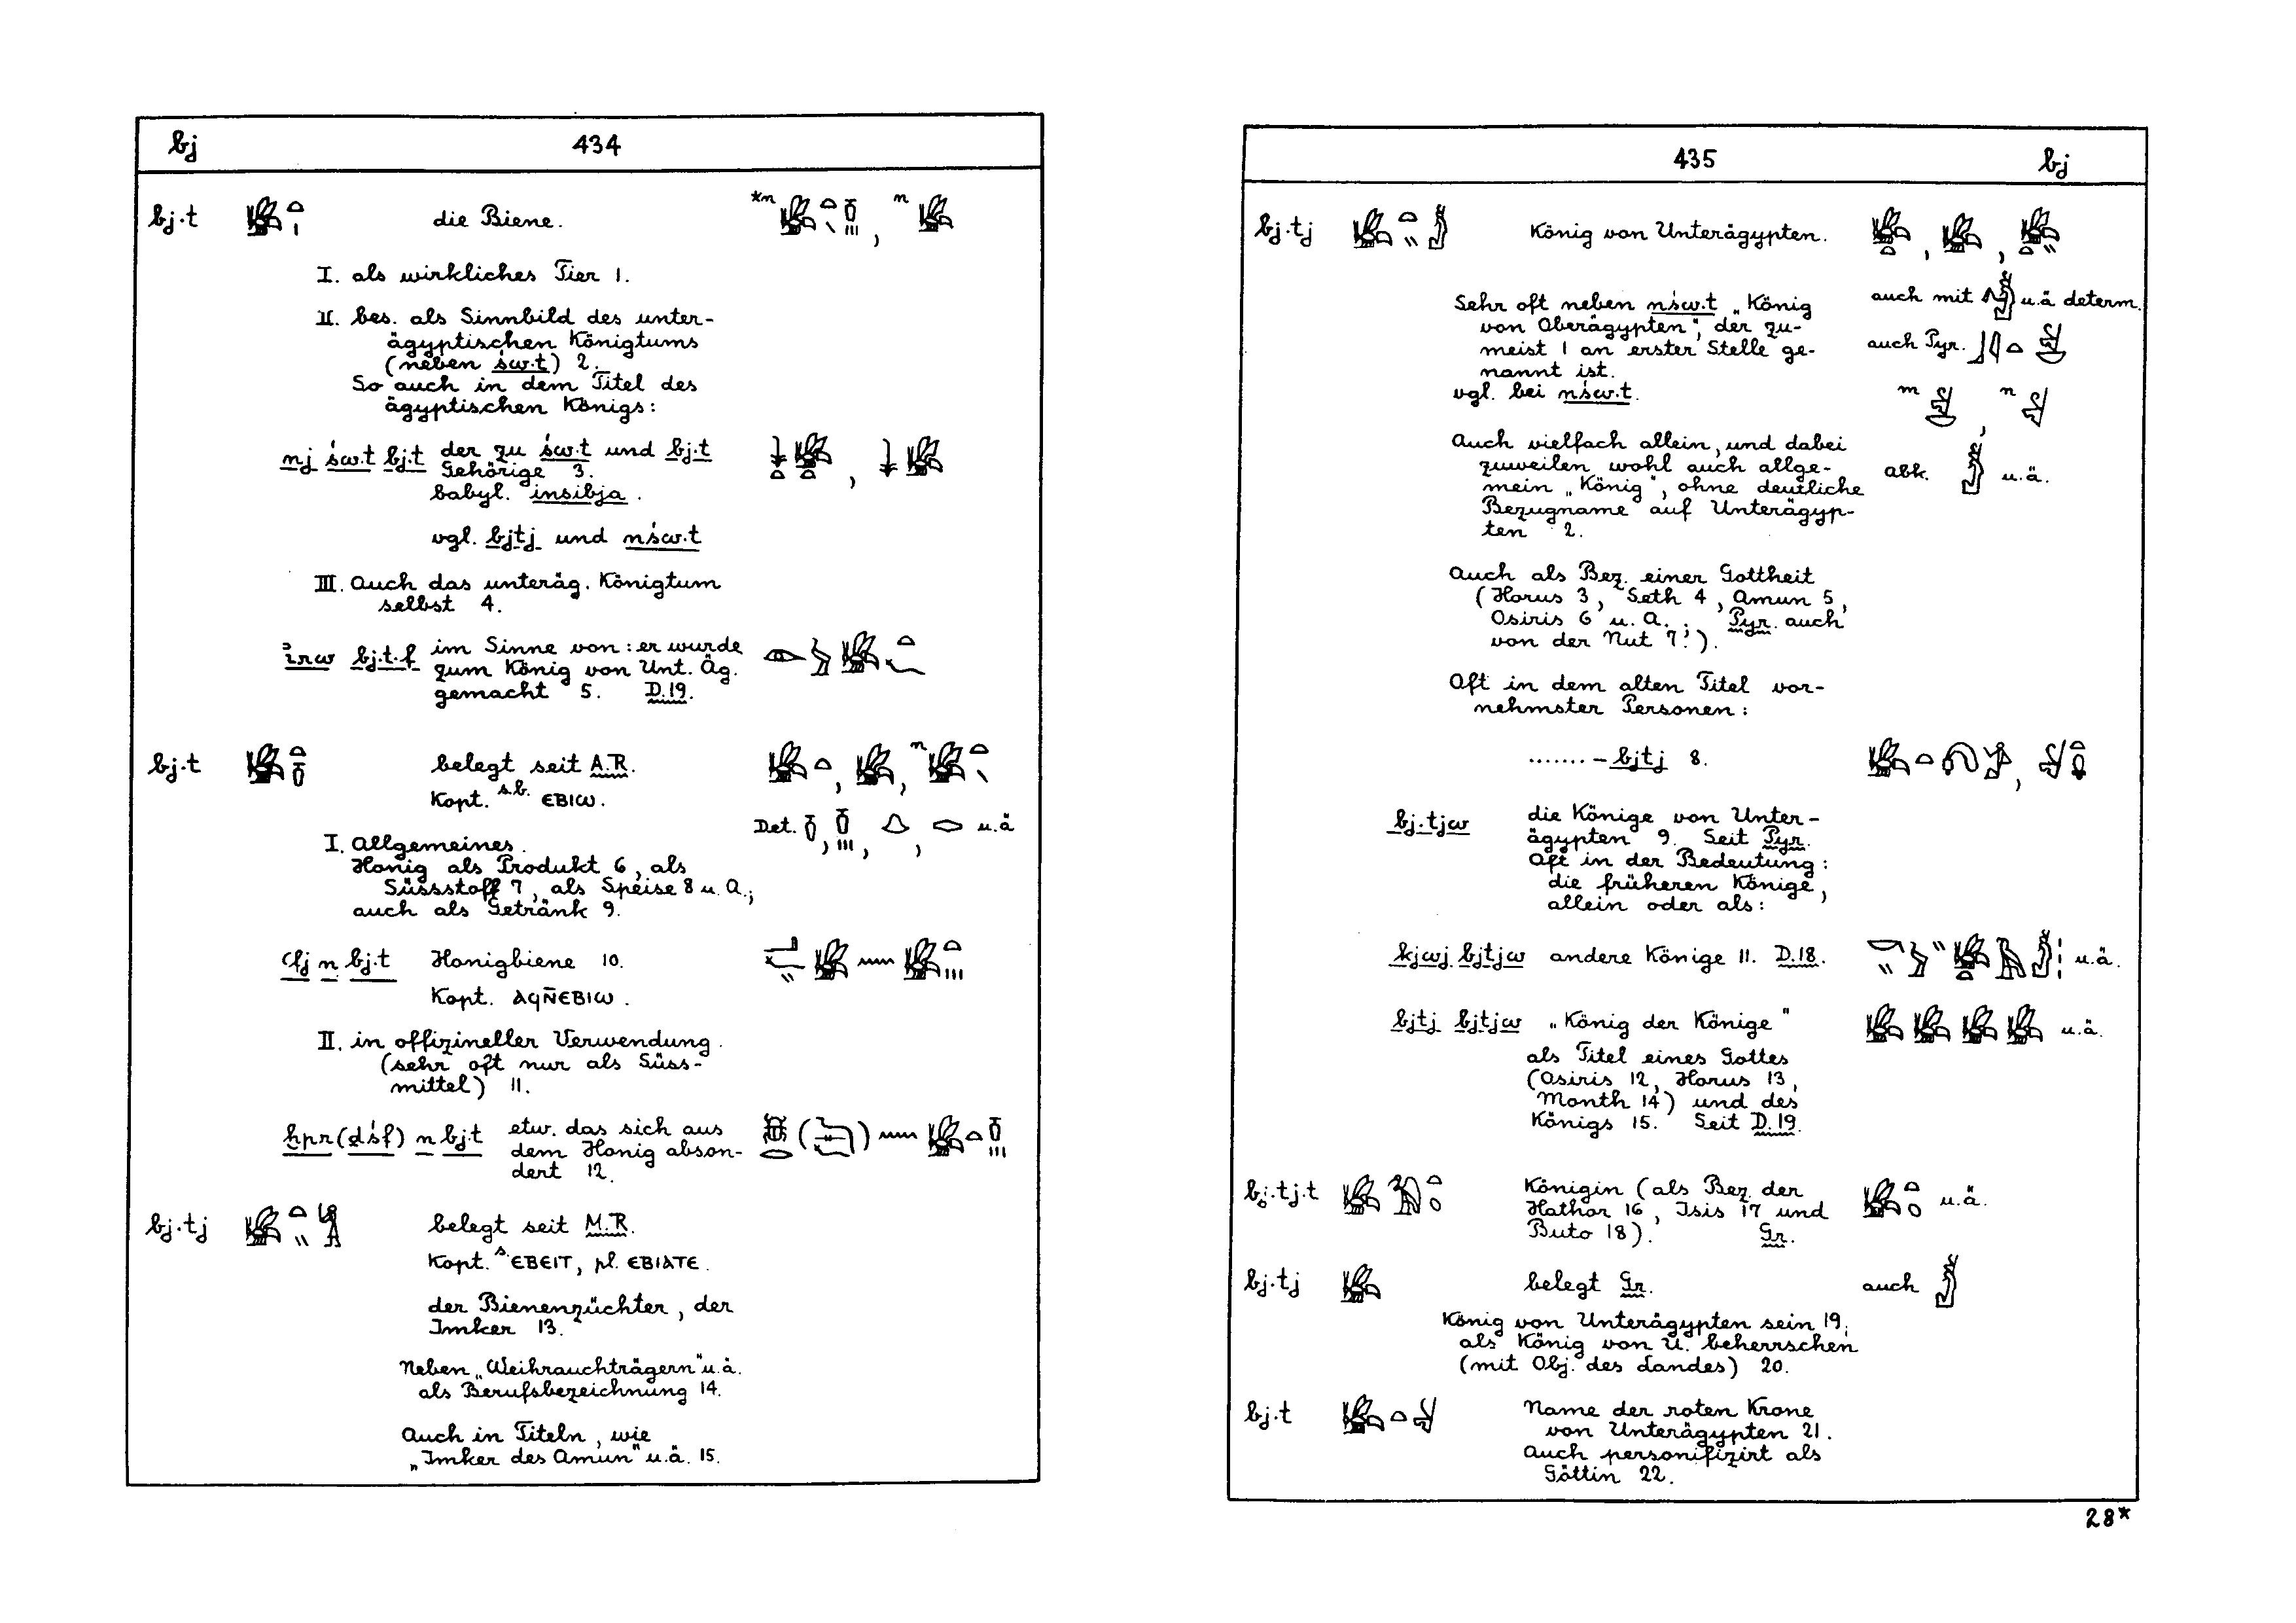 bj 434
bj.t die Biene.
I. als wirkliches Tier 1.
II. bes. als Sinnbild des unter-
ägyptischen Königtums
(neben św.t) 2.
So auch in dem Titel des
ägyptischen Königs:
nj św.t bj.t der zu św.t und bj.t
Gehörige 3.
babyl. insibja.
vgl. bjtj und nśw.t
III. Auch das unteräg. Königtum
selbst 4.
irw bj.t.f im Sinne von: er wurde
zum König von Unt. Äg.
gemacht 5. D.19.
bj.t belegt seit A.R.
Kopt. s.b. ⲉⲃⲓⲱ.
Det. u.ä
I. Allgemeines.
Honig als Produkt 6, als
Süssstoff 7, als Speise 8 u. A.;
auch als Getränk 9.
ꜥfj n bj.t Honigbiene 10.
Kopt. ⲁϥⲛ̄ⲉⲃⲓⲱ.
II. in offizineller Verwendung.
(sehr oft nur als Süss-
mittel) 11.
ḫpr (dśf) n bj.t etw. das sich aus
dem Honig abson-
dert 12.
bj.tj belegt seit M.R.
Kopt. s. ⲉⲃⲉⲓⲧ, pl. ⲉⲃⲓⲁⲧⲉ.
der Bienenzüchter, der
Imker 13.
Neben „Weihrauchträgern" u.ä.
als Berufsbezeichnung 14.
Auch in Titeln, wie
„Imker des Amun" u.ä. 15.
435 bj
bj.tj König von Unterägypten.
auch mit u.ä determ.
Sehr oft neben nśw.t „König
von Oberägypten", der zu-
meist 1 an erster Stelle ge-
nannt ist.
vgl. bei nśw.t.
auch Pyr.
m n
Auch vielfach allein, und dabei
zuweilen wohl auch allge-
mein „König", ohne deutliche
Bezugname auf Unterägyp-
ten 2.
abk. u.ä.
Auch als Bez. einer Gottheit
(Horus 3, Seth 4, Amun 5,
Osiris 6 u. A.; Pyr. auch
von der Nut 7.).
Oft in dem alten Titel vor-
nehmster Personen:
....... – bjtj 8.
bj.tjw die Könige von Unter-
ägypten 9. Seit Pyr.
Oft in der Bedeutung:
die früheren Könige,
allein oder als:
kjwj bjtjw andere Könige 11. D.18. u.ä.
bjtj bjtjw „König der Könige" u.ä.
als Titel eines Gottes
(Osiris 12, Horus 13,
Month 14) und des
Königs 15. Seit D.19.
bj.tj.t Königin (als Bez. der u.ä.
Hathor 16, Isis 17 und
Buto 18). Gr.
bj.tj belegt Gr. auch
König von Unterägypten sein 19,
als König von U. beherrschen
(mit Obj. des Landes) 20.
bj.t Name der roten Krone
von Unterägypten 21.
Auch personifizirt als
Göttin 22.
28*